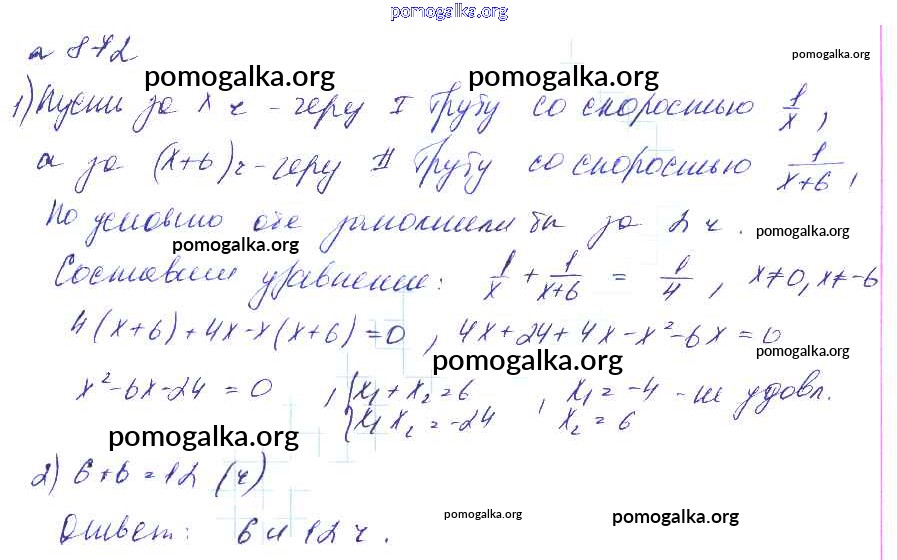 pomogalka.org
№ 872
pomogalka.org
pomogalka.org pomogalka.org
1) Пусть за x ч - через I трубу со скоростью 1/x ,
а за (x+6) ч - через II трубу со скоростью 1/(x+6) ,
По условию обе наполнили бы за 2 ч .
pomogalka.org pomogalka.org
Составим уравнение: 1/x + 1/(x+6) = 1/4 , x≠0, x≠-6
4(x+6)+4x-x(x+6)=0 , 4x+24+4x-x²-6x=0
pomogalka.org
pomogalka.org
x²-6x-24=0 , {x₁+x₂=6 x₁x₂=-24 , x₁=-4 - не удовл. x₂=6
pomogalka.org
2) 6+6=12 (ч)
pomogalka.org pomogalka.org
Ответ: 6 и 12 ч .